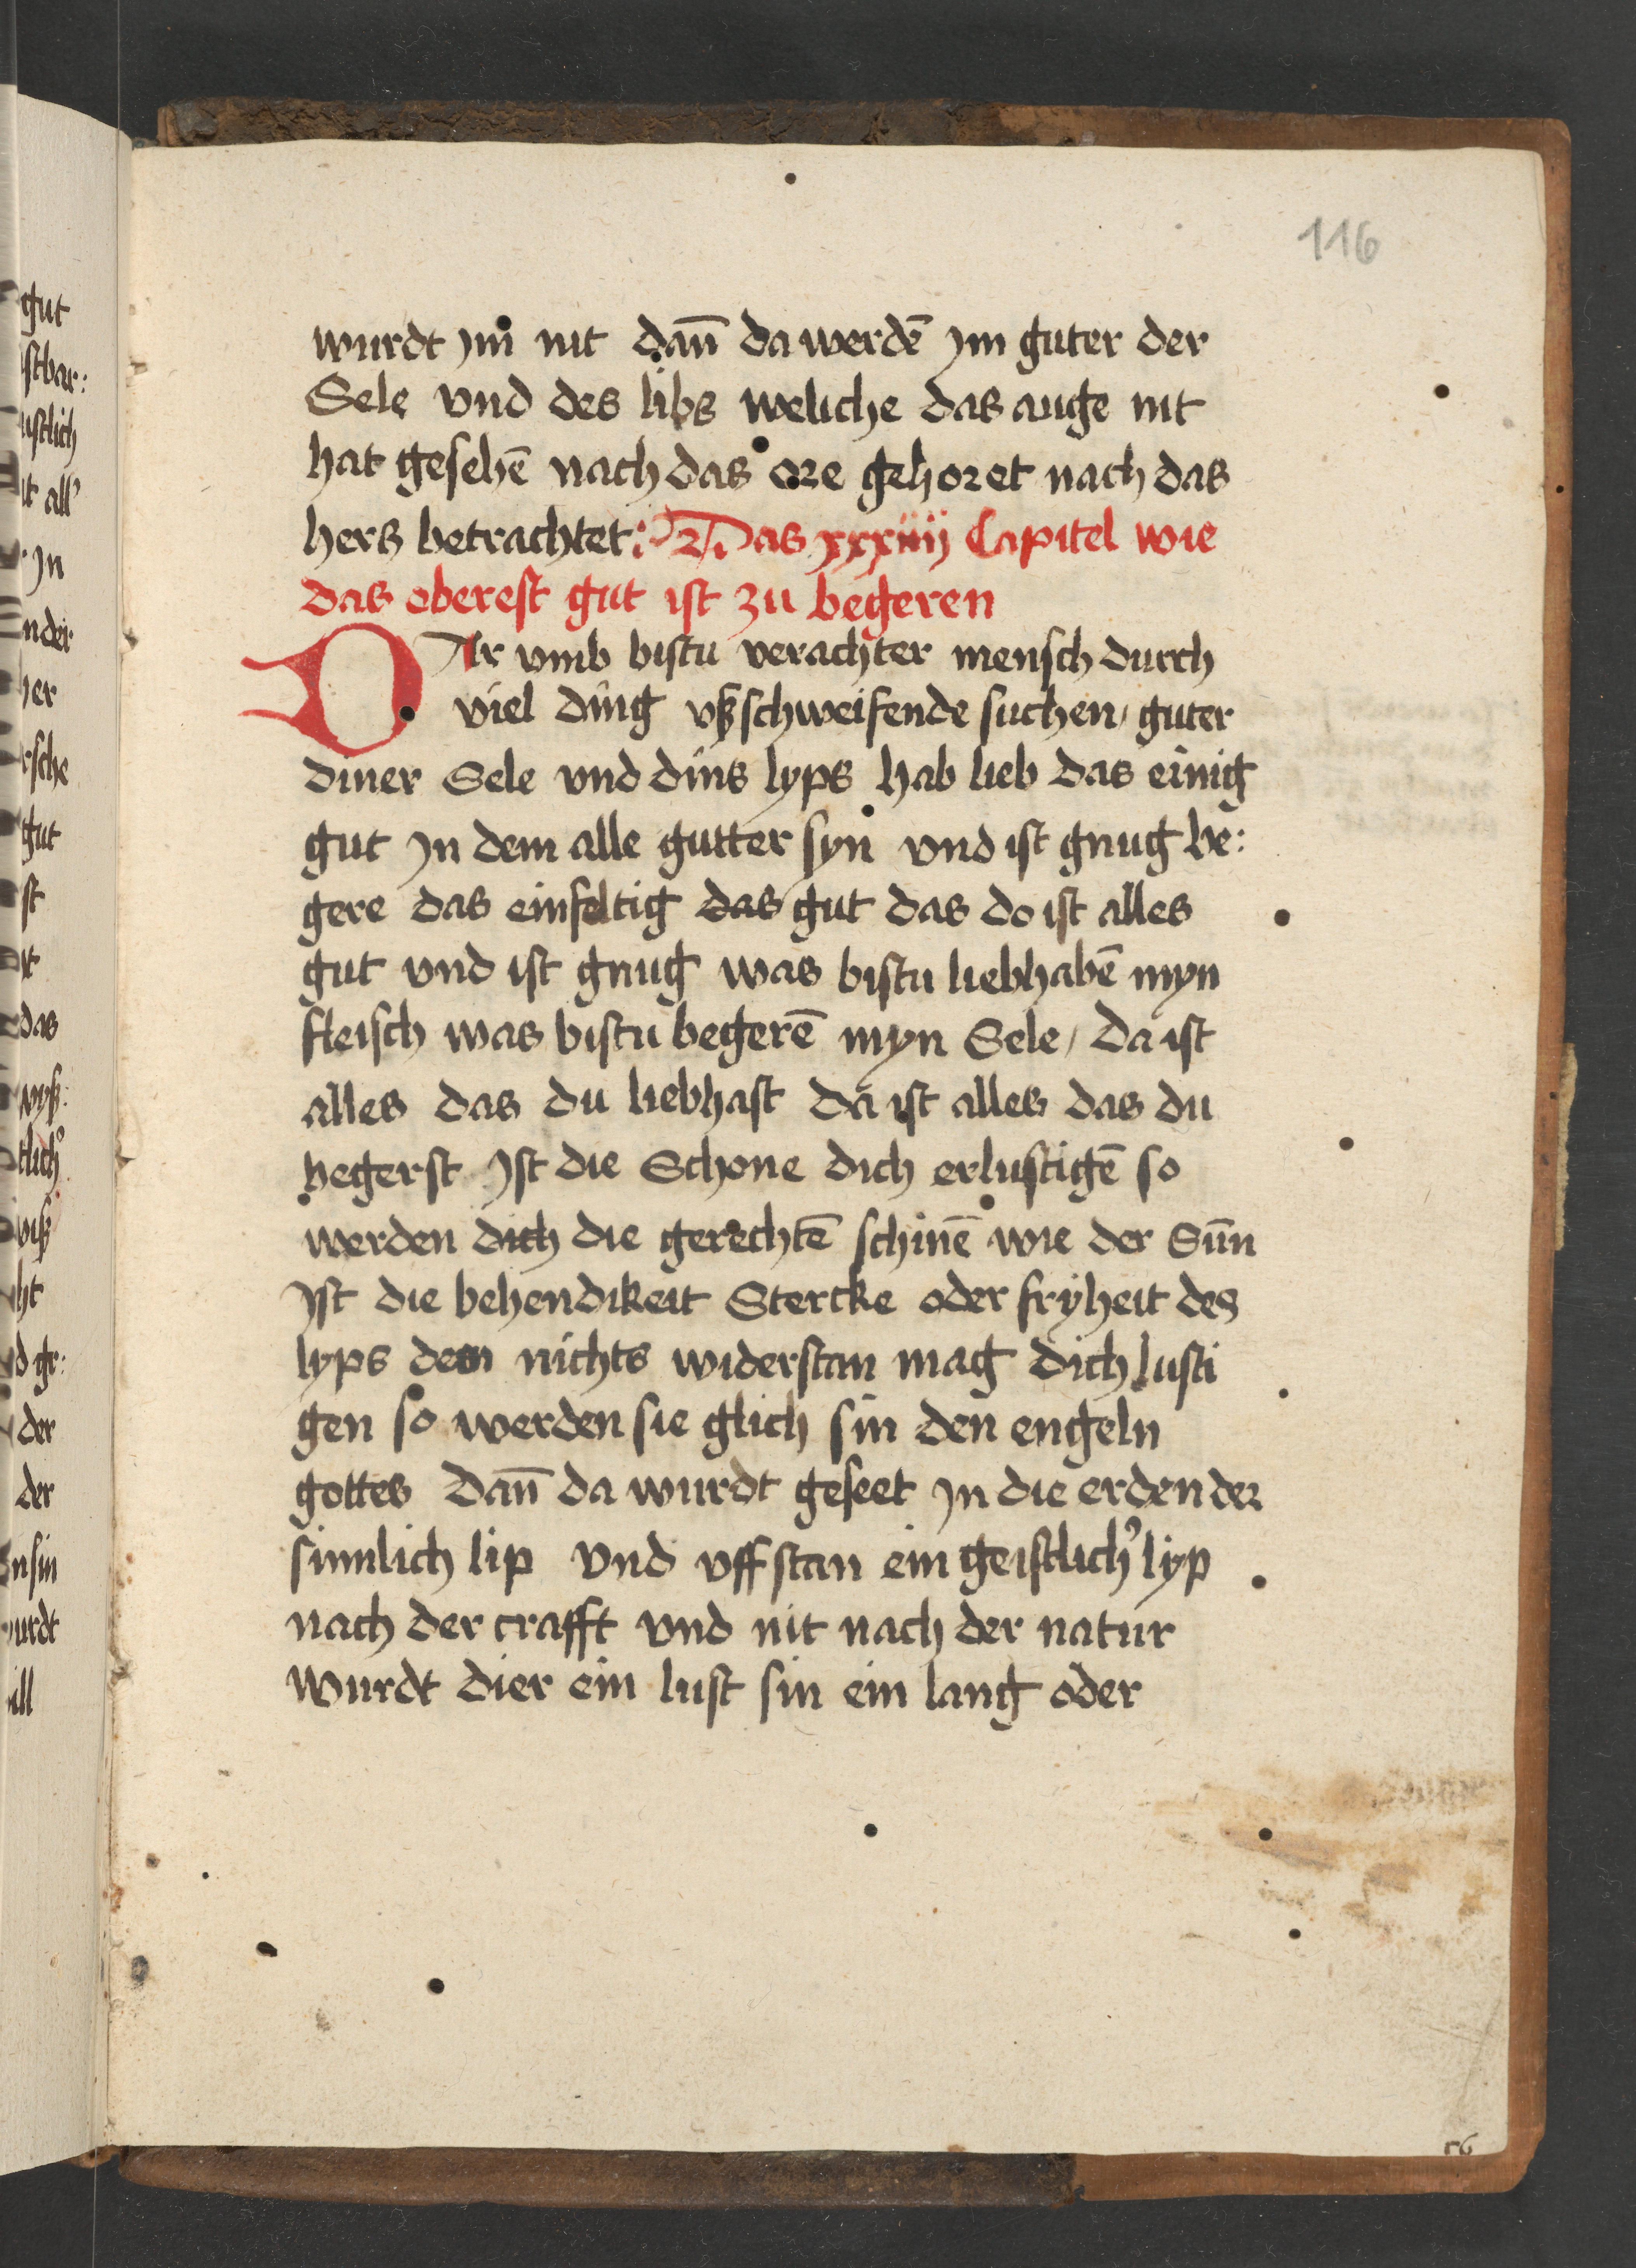 116
wurdt jm nit dañ da werdē jm guter der
Sele vnd des libs weliche das auge nit
hat gesehē nach das ore gehoret nach das
hers betrachtet: Das xxxiiij Capitel wie
das oberest gut ist zu begeren
DAr vmb bistu verachter mensch durch
viel ding vßschweifende suchen, guter
diner Sele vnd dins lyps hab lieb das einig
gut jn dem alle gutter syn vnd ist gnug be:
gere das einfeltig das gut das do ist alles
gut vnd ist gnug was bistu liebhabē myn
fleisch was bistu begerē myn Sele, da ist
alles das du liebhast da ist alles das du
begerst Jst die Schone dich erlustigē so
werden dich die gerechtē schinē wie der Suñ
Jst die behendikeit Stercke oder fryheit des
lyps dem nichts widerstan mag dich lusti
gen so werden sie glich sin den engeln
gottes Dañ da wurdt geseet jn die erden der
sinnlich lip vnd vffstan ein geistlich᾽ lyp
nach der crafft vnd nit nach der natur
wurdt dier ein lust sin ein lang oder